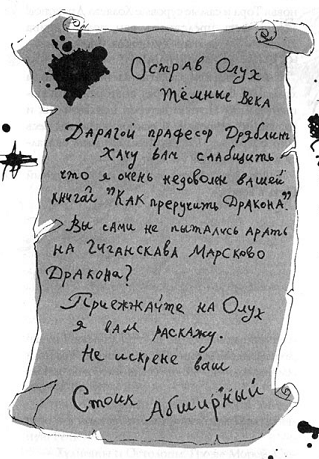 Острав Олух
тёмные века
Дарагой прафесор Дряблинг
Хачу вам слабщить
что я очень незоволен вашей
книгай "Как преручить Дракона".
Вы сами не пытались арать
на Гиганскава Марсково
Дракона?
Приежжайте на Олух
я вам раскажу.
Не искрене ваш
Стоик Абширный